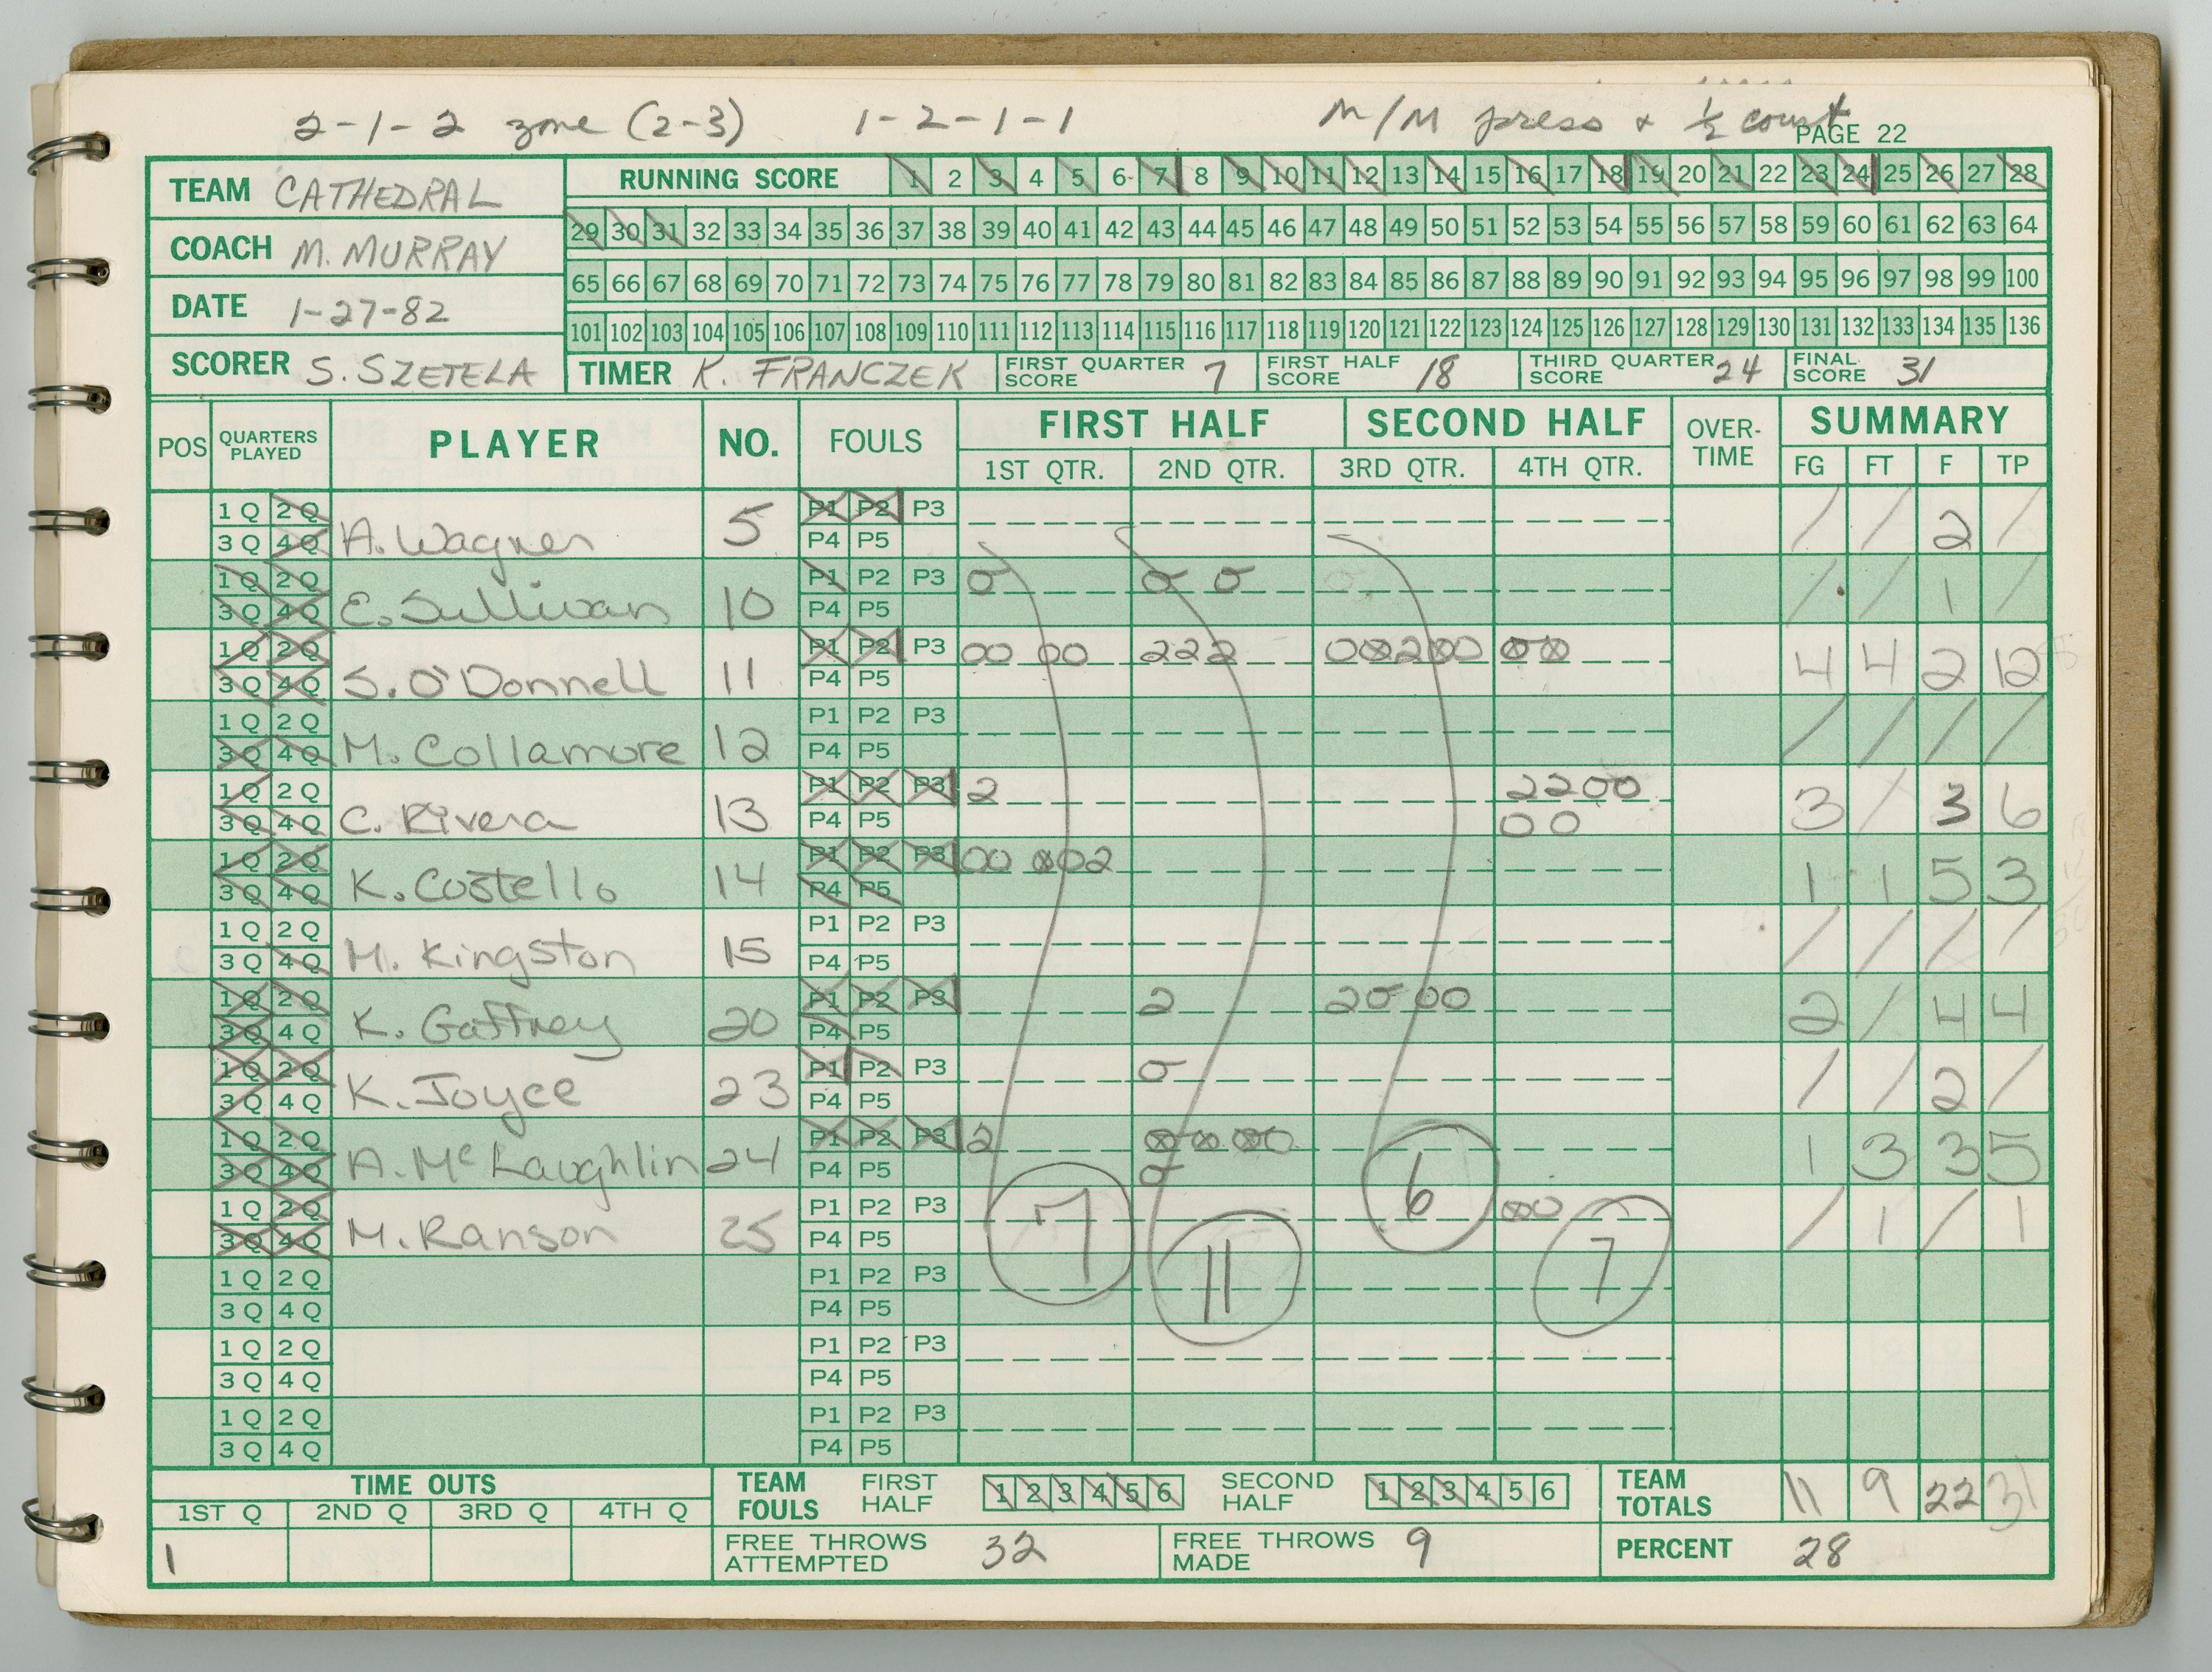 2-1-2 zone (2-3) 1-2-1-1 M/M press & ½ court
PAGE 22
TEAM CATHEDRAL
COACH M. MURRAY
DATE 1-27-82
SCORER S. SZETELA
RUNNING SCORE 1 2 3 4 5 6 7 8 9 10 11 12 13 14 15 16 17 18 19 20 21 22 23 24 25 26 27 28
29 30 31 32 33 34 35 36 37 38 39 40 41 42 43 44 45 46 47 48 49 50 51 52 53 54 55 56 57 58 59 60 61 62 63 64
65 66 67 68 69 70 71 72 73 74 75 76 77 78 79 80 81 82 83 84 85 86 87 88 89 90 91 92 93 94 95 96 97 98 99 100
101 102 103 104 105 106 107 108 109 110 111 112 113 114 115 116 117 118 119 120 121 122 123 124 125 126 127 128 129 130 131 132 133 134 135 136
TIMER K. FRANCZEK FIRST QUARTER SCORE 7 FIRST HALF SCORE 18 THIRD QUARTER SCORE 24 FINAL SCORE 31
POS QUARTERS PLAYED PLAYER NO. FOULS FIRST HALF SECOND HALF OVER-TIME SUMMARY
1ST QTR. 2ND QTR. 3RD QTR. 4TH QTR. FG FT F TP
1 Q 2 Q P1 P2 P3
3 Q 4 Q A. Wagner 5 P4 P5 / / 2 /
1 Q 2 Q P1 P2 P3 0 0 0
3 Q 4 Q E. Sullivan 10 P4 P5 / / 1 /
1 Q 2 Q P1 P2 P3 00 00 222 00200 00
3 Q 4 Q S. O'Donnell 11 P4 P5 4 4 2 12
1 Q 2 Q P1 P2 P3
3 Q 4 Q M. Collamore 12 P4 P5 / / / /
1 Q 2 Q P1 P2 P3 2 2200
3 Q 4 Q C. Rivera 13 P4 P5 00 3 / 3 6
1 Q 2 Q P1 P2 P3 00 002
3 Q 4 Q K. Costello 14 P4 P5 1 1 5 3
1 Q 2 Q P1 P2 P3
3 Q 4 Q M. Kingston 15 P4 P5 / / / /
1 Q 2 Q P1 P2 P3 2 20 00
3 Q 4 Q K. Gaffney 20 P4 P5 2 / 4 4
1 Q 2 Q P1 P2 P3 0
3 Q 4 Q K. Joyce 23 P4 P5 / / 2 /
1 Q 2 Q P1 P2 P3 2 00 00
3 Q 4 Q A. McLaughlin 24 P4 P5 0 1 3 3 5
1 Q 2 Q P1 P2 P3 7 6 00
3 Q 4 Q M. Ranson 25 P4 P5 / 1 / 1
1 Q 2 Q P1 P2 P3 11 7
3 Q 4 Q P4 P5
1 Q 2 Q P1 P2 P3
3 Q 4 Q P4 P5
1 Q 2 Q P1 P2 P3
3 Q 4 Q P4 P5
TIME OUTS
1ST Q 2ND Q 3RD Q 4TH Q
1
TEAM FOULS FIRST HALF 1 2 3 4 5 6 SECOND HALF 1 2 3 4 5 6
TEAM TOTALS 11 9 22 31
FREE THROWS ATTEMPTED 32 FREE THROWS MADE 9 PERCENT 28